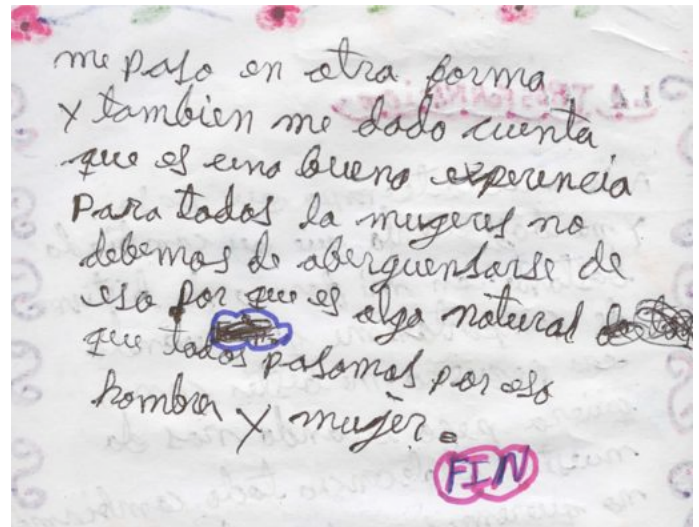 me paso en otra forma
y tambien me dado cuenta
que es una bueno experencia
Para todas la mugeres no
debemos de aberguensarse de
eso por que es algo natural
que todos pasamos por eso
hombra y mujer.
FIN